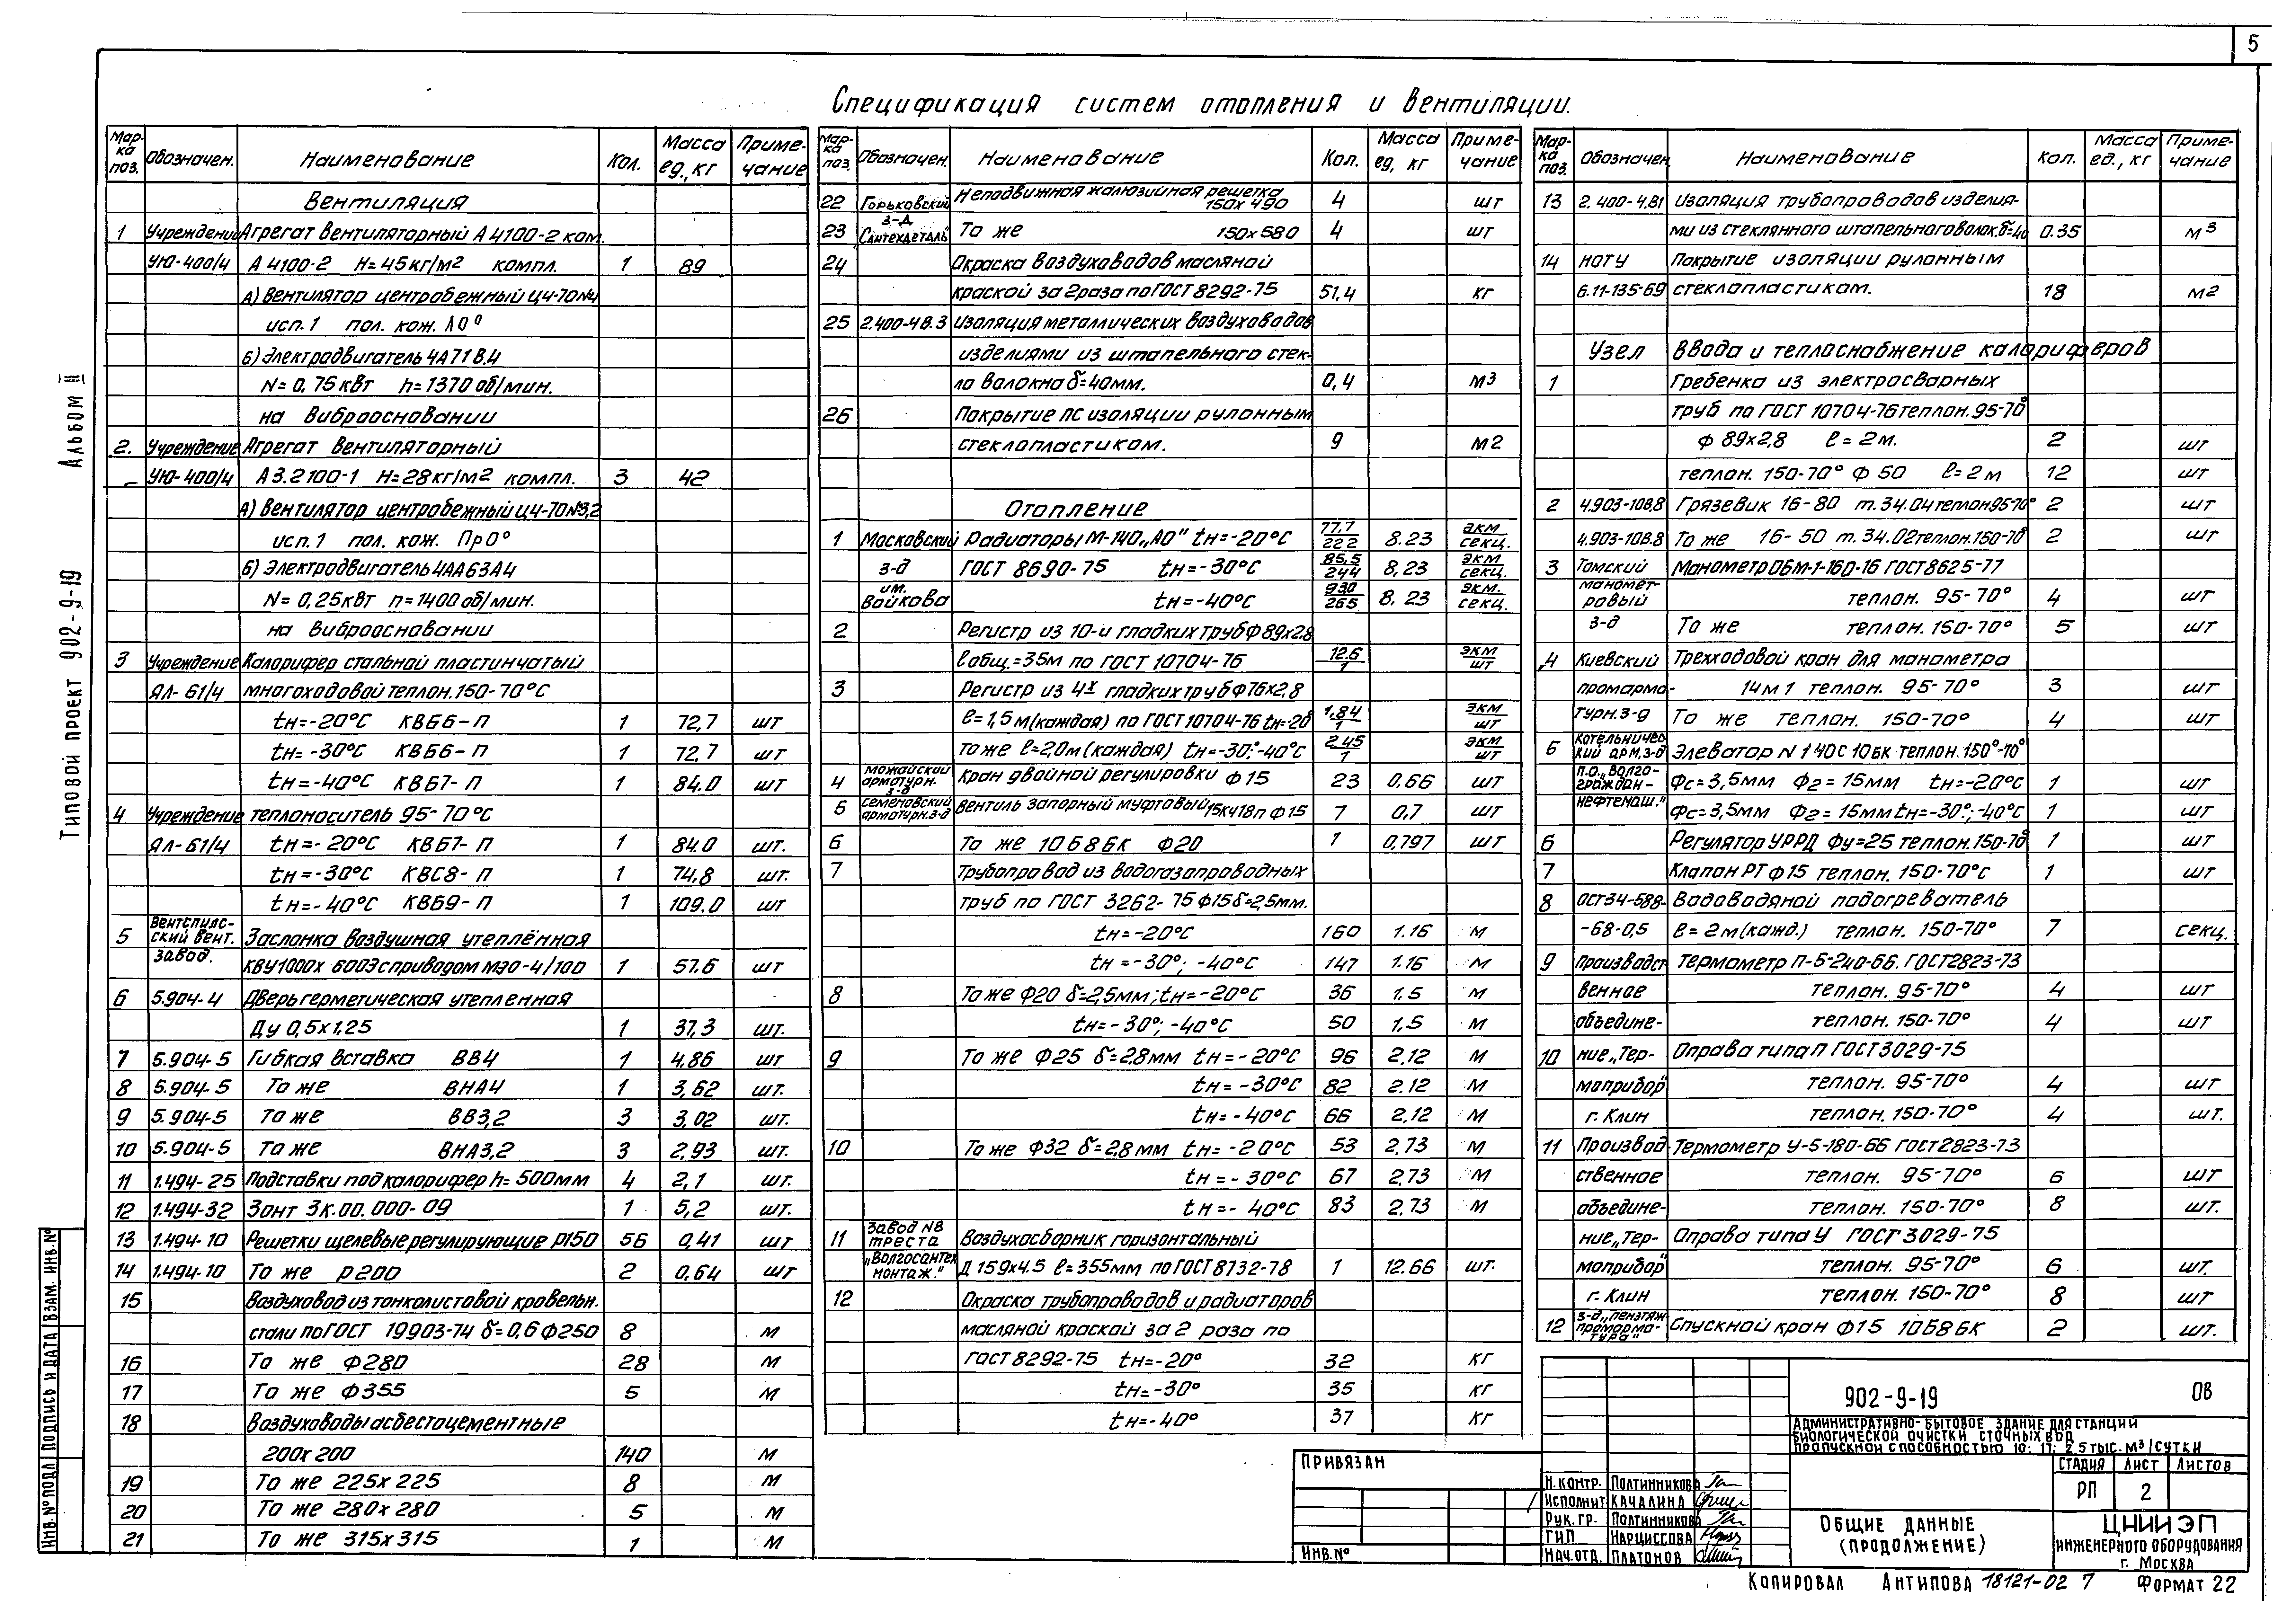 5
Спецификация систем отопления и вентиляции.
Альбом II
Типовой проект 902-9-19
Взам. инв. №
Подпись и дата
Инв. № подл
Мар-ка поз. Обозначен. Наименование Кол. Масса ед., кг Приме-чание
Вентиляция
1 Учреждение Агрегат вентиляторный А4100-2 ком.
УЮ-400/4 А4100-2 Н=45кг/м2 компл. 1 89
А) Вентилятор центробежный Ц4-70№4
исп.1 пол. кож. Л0°
Б) Электродвигатель 4А71В.4
N=0,75квт h=1370об/мин.
на виброосновании
2. Учреждение Агрегат вентиляторный
УЮ-400/4 А3.2100-1 Н=28кг/м2 компл. 3 42
А) Вентилятор центробежный Ц4-70№3,2
исп.1 пол. кож. Пр0°
Б) Электродвигатель 4АА63А4
N=0,25квт п=1400об/мин.
на виброосновании
3 Учреждение Калорифер стальной пластинчатый
ЯЛ-61/4 многоходовой теплон.150-70°С
tн=-20°С КВБ6-п 1 72,7 шт
tн=-30°С КВБ6-п 1 72,7 шт
tн=-40°С КВБ7-п 1 84.0 шт
4 Учреждение теплоноситель 95-70°С
ЯЛ-61/4 tн=-20°С КВБ7-п 1 84.0 шт.
tн=-30°С КВС8-п 1 74,8 шт.
tн=-40°С КВБ9-п 1 109.0 шт
5 Вентспилс-ский вент. завод. Заслонка воздушная утеплённая
КВУ1000х600Э с приводом МЭО-4/100 1 57.6 шт
6 5.904-4 Дверь герметическая утепленная
Ду 0,5х1.25 1 37,3 шт.
7 5.904-5 Гибкая вставка ВВ4 1 4,86 шт
8 5.904-5 То же ВНА4 1 3,62 шт.
9 5.904-5 То же ВВ3,2 3 3,02 шт.
10 5.904-5 То же ВНА3,2 3 2,93 шт.
11 1.494-25 Подставки под калорифер h=500мм 4 2,1 шт.
12 1.494-32 Зонт ЗК.00.000-09 1 5,2 шт.
13 1.494-10 Решетки щелевые регулирующие Р150 56 0,41 шт
14 1.494-10 То же Р200 2 0,64 шт
15 Воздуховод из тонколистовой кровельн.
стали по ГОСТ 19903-74 δ=0,6 Ф250 8 м
16 То же Ф280 28 м
17 То же Ф355 5 м
18 Воздуховоды асбестоцементные
200х200 140 м
19 То же 225х225 8 м
20 То же 280х280 5 м
21 То же 315х315 1 м
Мар-ка поз. Обозначен. Наименование Кол. Масса ед, кг Приме-чание
22 Горьковский Неподвижная жалюзийная решетка 150х490 4 шт
23 з-д „Сантехдеталь" То же 150х580 4 шт
24 Окраска воздуховодов масляной
краской за 2раза по ГОСТ 8292-75 51,4 кг
25 2.400-4 В.3 Изоляция металлических воздуховодов
изделиями из штапельного стек-
ла волокна δ=40мм. 0,4 м3
26 Покрытие по изоляции рулонным
стеклопластиком. 9 м2
Отопление
1 Московский Радиаторы М-140„АО" tн=-20°С 77.7/222 8.23 экм/секц.
з-д ГОСТ 8690-75 tн=-30°С 85,5/244 8,23 экм/секц.
им. Войкова tн=-40°С 930/265 8,23 экм./секц.
2 Регистр из 10-и гладких труб Ф89х2.8
l общ.=35м по ГОСТ 10704-76 12.6/1 экм/шт
3 Регистр из 4х гладких труб Ф76х2,8
l=1,5м(каждая) по ГОСТ 10704-76 tн=-20° 1,84/1 экм/шт
то же l=20м(каждая) tн=-30°;-40°С 2.45/1 экм/шт
4 Можайский арматурн. з-д Кран двойной регулировки Ф15 23 0,66 шт
5 Семеновский арматурн. з-д Вентиль запорный муфтовый 15кч18п Ф15 7 0,7 шт
6 То же 10Б8бк Ф20 1 0,797 шт
7 Трубопровод из водогазопроводных
труб по ГОСТ 3262-75 Ф15 δ=2,5мм.
tн=-20°С 160 1.16 м
tн=-30°; -40°С 147 1.16 м
8 То же Ф20 δ=2,5мм; tн=-20°С 36 1.5 м
tн=-30°; -40°С 50 1,5 м
9 То же Ф25 δ=2.8мм tн=-20°С 96 2,12 м
tн=-30°С 82 2.12 м
tн=-40°С 66 2,12 м
10 То же Ф32 δ=2,8мм tн=-20°С 53 2.73 м
tн=-30°С 67 2,73 м
tн=-40°С 83 2.73 м
11 Завод №8 треста Воздухосборник горизонтальный
„Волгосантехмонтаж." Д 159х4.5 l=355мм по ГОСТ 8732-78 1 12.66 шт.
12 Окраска трубопроводов и радиаторов
масляной краской за 2 раза по
ГОСТ 8292-75 tн=-20° 32 кг
tн=-30° 35 кг
tн=-40° 37 кг
Мар-ка поз. Обозначен Наименование Кол. Масса ед., кг Приме-чание
13 2.400-4.В1 Изоляция трубопроводов изделия-
ми из стеклянного штапельного волок. δ=40 0.35 м3
14 НОТУ Покрытие изоляции рулонным
6.11-135-69 стеклопластиком. 18 м2
Узел ввода и теплоснабжение калориферов
1 Гребенка из электросварных
труб по ГОСТ 10704-76 теплон.95-70°
Ф 89х2,8 l=2м. 2 шт
теплон. 150-70° Ф 50 l=2м 12 шт
2 4.903-10В.8 Грязевик 16-80 т.34.04 теплон.95-70° 2 шт
4.903-10В.8 То же 16-50 т.34.02 теплон.150-70° 2 шт
3 Томский Манометр ОБМ-1-160-16 ГОСТ 8625-77
маномет-ровый теплон. 95-70° 4 шт
з-д То же теплон. 150-70° 5 шт
4 Киевский Трехходовой кран для манометра
промарма- 14м1 теплон. 95-70° 3 шт
турн.з-д То же теплон. 150-70° 4 шт
5 Котельничес-кий арм.з-д Элеватор N 1 40С 10бк теплон.150°-70°
п.о.„Волго-граждан- Фс=3,5мм Ф2=15мм tн=-20°С 1 шт
нефтемаш." Фс=3,5мм Ф2=15мм tн=-30°;-40°С 1 шт
6 Регулятор УРРД Фу=25 теплон.150-70° 1 шт
7 Клапан РТ Ф15 теплон. 150-70°С 1 шт
8 ОСТ34-588- Водоводяной подогреватель
-68-0,5 l=2м(кажд.) теплон. 150-70° 7 секц.
9 Производст Термометр П-5-240-66. ГОСТ2823-73
венное теплон. 95-70° 4 шт
объедине- теплон. 150-70° 4 шт
10 ние„Тер- Оправа типа П ГОСТ 3029-75
моприбор" теплон. 95-70° 4 шт
г. Клин теплон. 150-70° 4 шт.
11 Производ- Термометр У-5-180-66 ГОСТ2823-73
ственное теплон. 95-70° 6 шт
объедине- теплон. 150-70° 8 шт.
ние„Тер- Оправа типа У ГОСТ 3029-75
моприбор" теплон. 95-70° 6 шт.
г. Клин теплон. 150-70° 8 шт
12 з-д „Пензтяжпромарматура" Спускной кран Ф15 10Б8бк 2 шт.
Привязан
Инв.№
902-9-19 ОВ
Административно-бытовое здание для станций
биологической очистки сточных вод
пропускной способностью 10; 17; 25 тыс. м³/сутки
Стадия Лист Листов
РП 2
Н.контр. Полтинникова
Исполнит. Качалина
Рук.гр. Полтинникова
ГИП Нарциссова
Нач.отд. Платонов
Общие данные
(продолжение)
ЦНИИЭП
инженерного оборудования
г. Москва
Копировал Антипова 18121-02 7 Формат 22